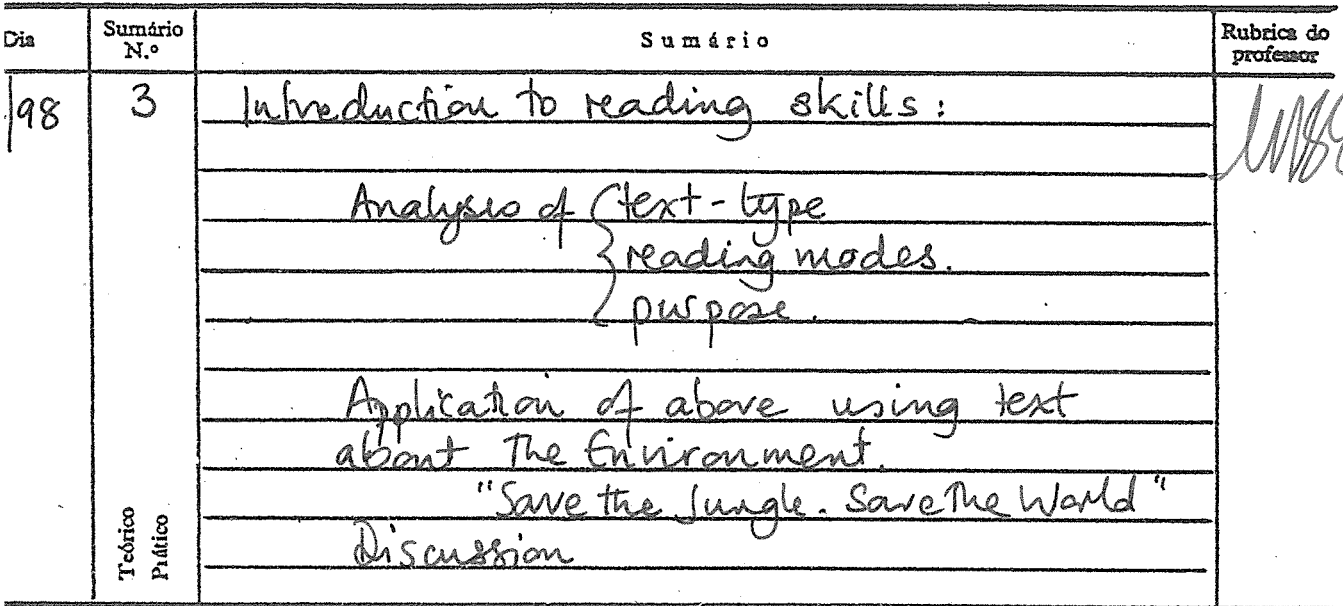 Dia Sumário N.º Sumário Rubrica do professor
/98 3 Introduction to reading skills:
Analysis of { text-type
reading modes.
purpose.
Application of above using text
about The Environment.
"Save the Jungle. Save The World"
Discussion
Teórico
Prático